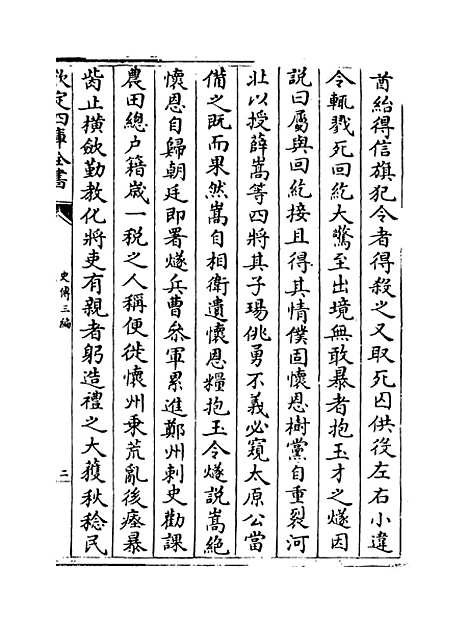 酋紿得信旗犯令者得殺之又取死囚供役左右小違
令輒戮死回紇大驚至出境無敢暴者抱玉才之燧因
說曰屬與回紇接且得其情僕固懷恩樹黨自重裂河
北以授薛嵩等四將其子瑒佻勇不義必窺太原公當
備之既而果然嵩自相衛遺懷恩糧抱玉令燧說嵩絶
懷恩自歸朝廷即署燧兵曹叅軍累進鄭州刺史勸課
農田總户籍歳一税之人稱便徙懷州乗荒亂後瘞暴
胔止橫斂勤教化將吏有親者躬造禮之大穫秋稔民
欽定四庫全書
史傳三編
二